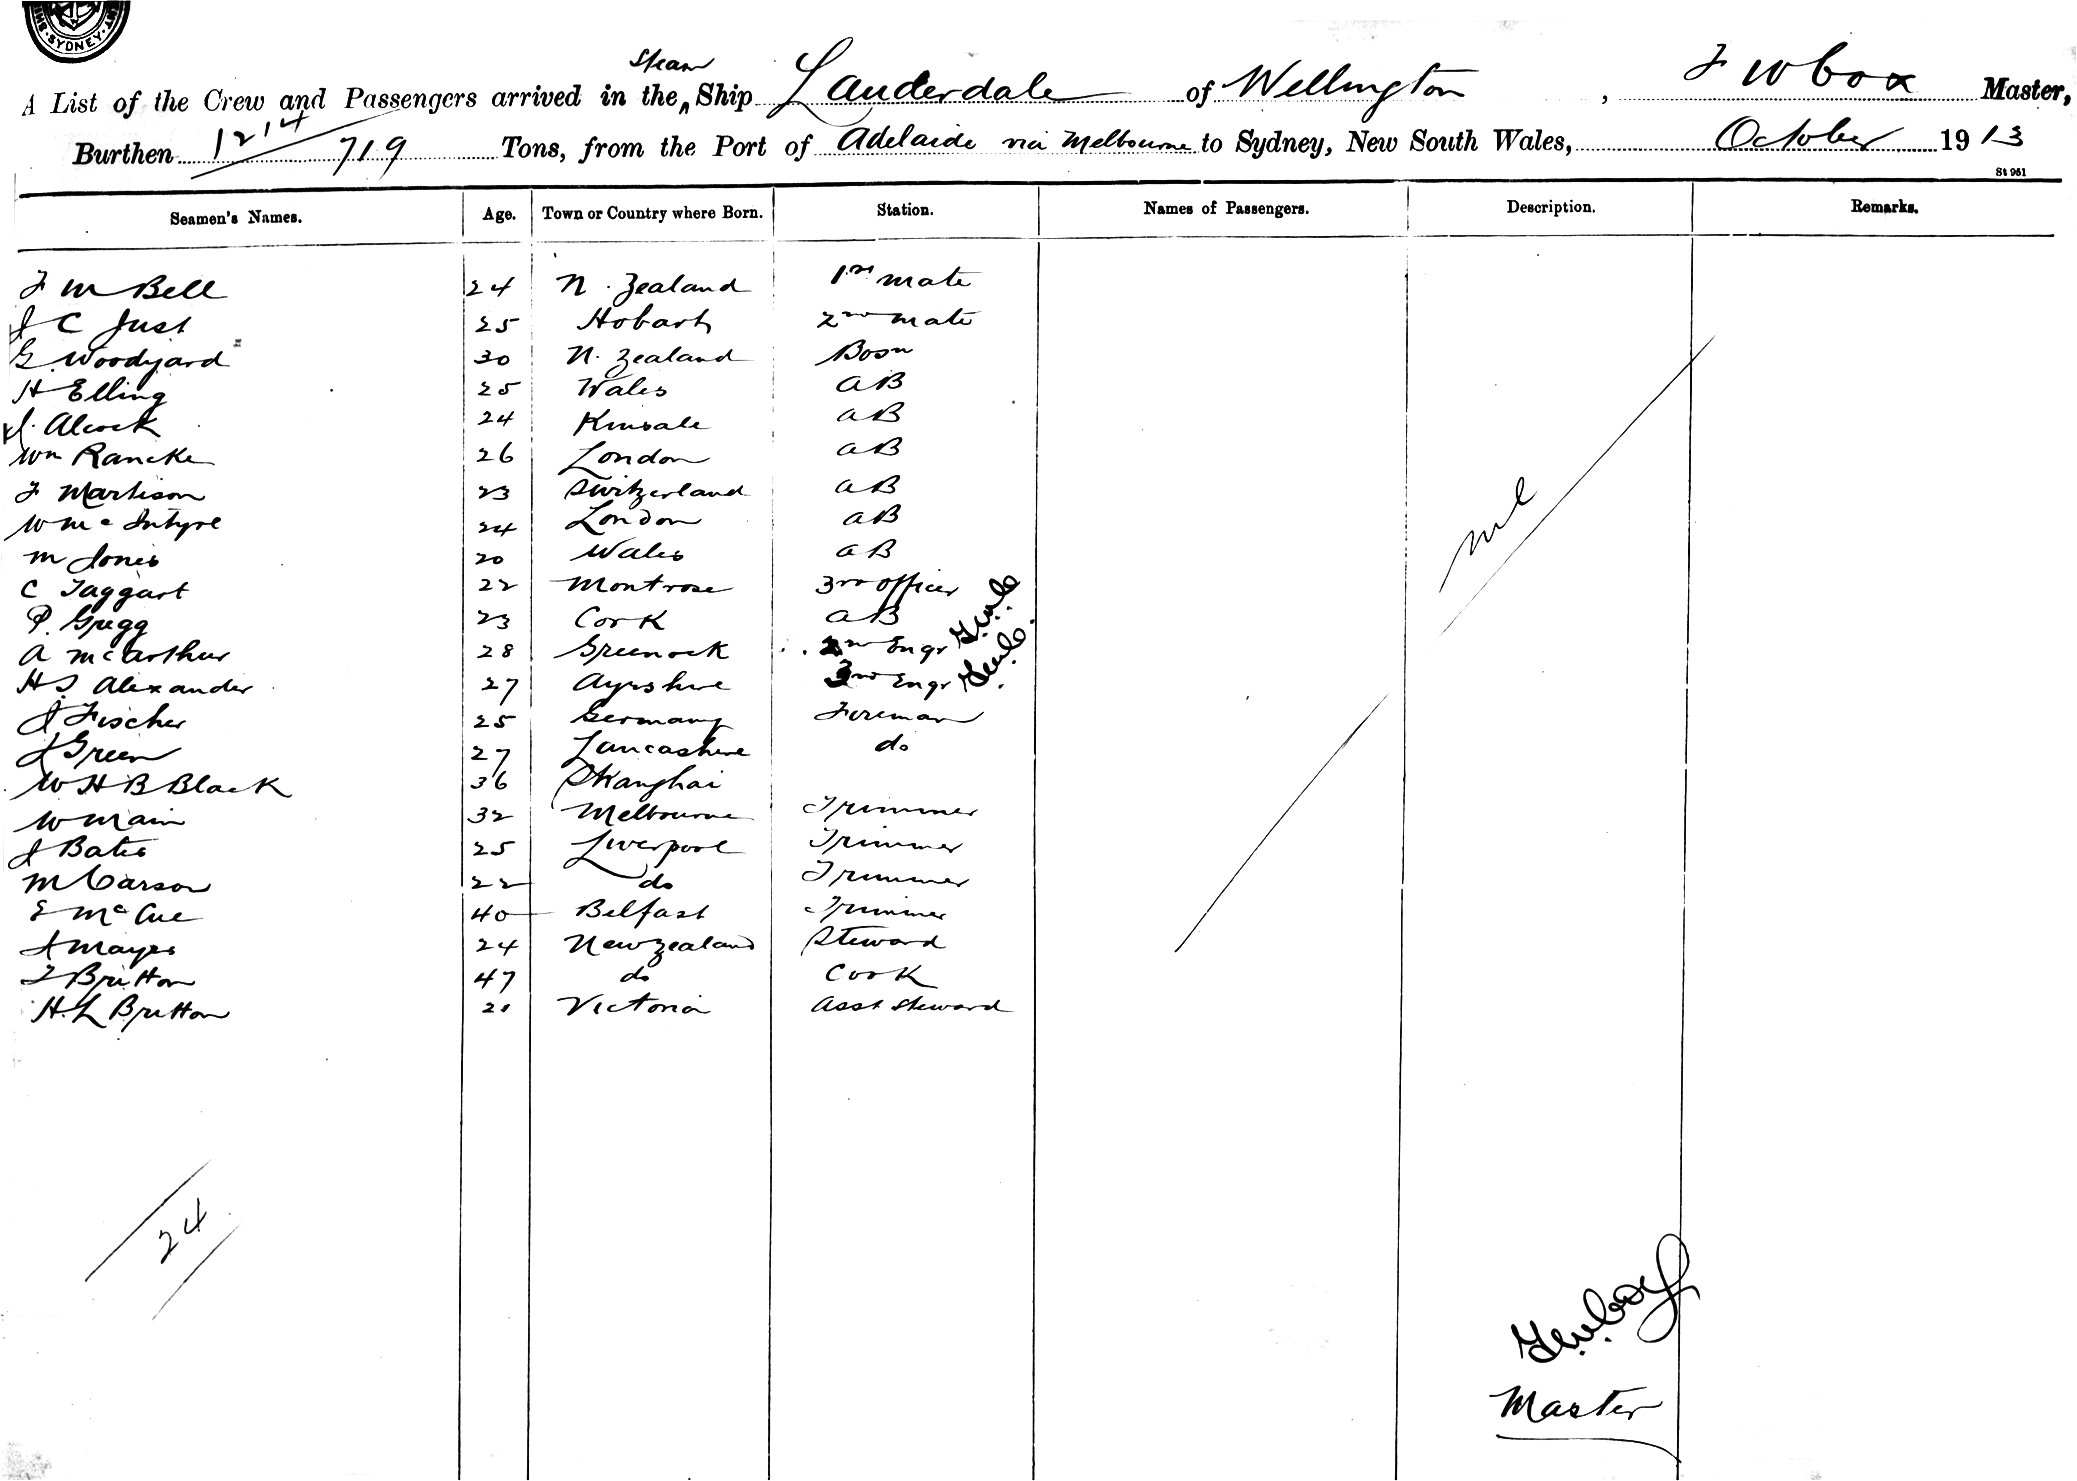 SYDNEY
Steam
A List of the Crew and Passengers arrived in the Ship Lauderdale of Wellington, F W Cox Master,
Burthen 1214 / 719 Tons, from the Port of Adelaide via Melbourne to Sydney, New South Wales, October 1913
St 961
Seamen's Names. Age. Town or Country where Born. Station. Names of Passengers. Description. Remarks.
F M Bell 24 N. Zealand 1st mate
J C Just 25 Hobart 2nd mate
G. Woodyard 30 N. Zealand Bosn
H Elling 25 Wales AB
J. Alcock 24 Kinsale AB
Wm Rancke 26 London AB
F Martison 23 Switzerland AB
W McIntyre 24 London AB
M Jones 20 Wales AB
nil
C Taggart 22 Montrose 3rd officer
P. Gregg 23 Cork AB
A McArthur 28 Greenock 2nd Engr F.W.C.
H S Alexander 27 Ayrshire 3rd Engr F.W.C.
J Fischer 25 Germany Fireman
J Green 27 Lancashire do
W H B Black 36 Shanghai
W Main 32 Melbourne Trimmer
J Bates 25 Liverpool Trimmer
M Carson 22 do Trimmer
E McCue 40 Belfast Trimmer
A Mayes 24 New Zealand Steward
T Britton 47 do Cook
H. L Britton 21 Victoria Asst Steward
24
F.W. Cox
Master